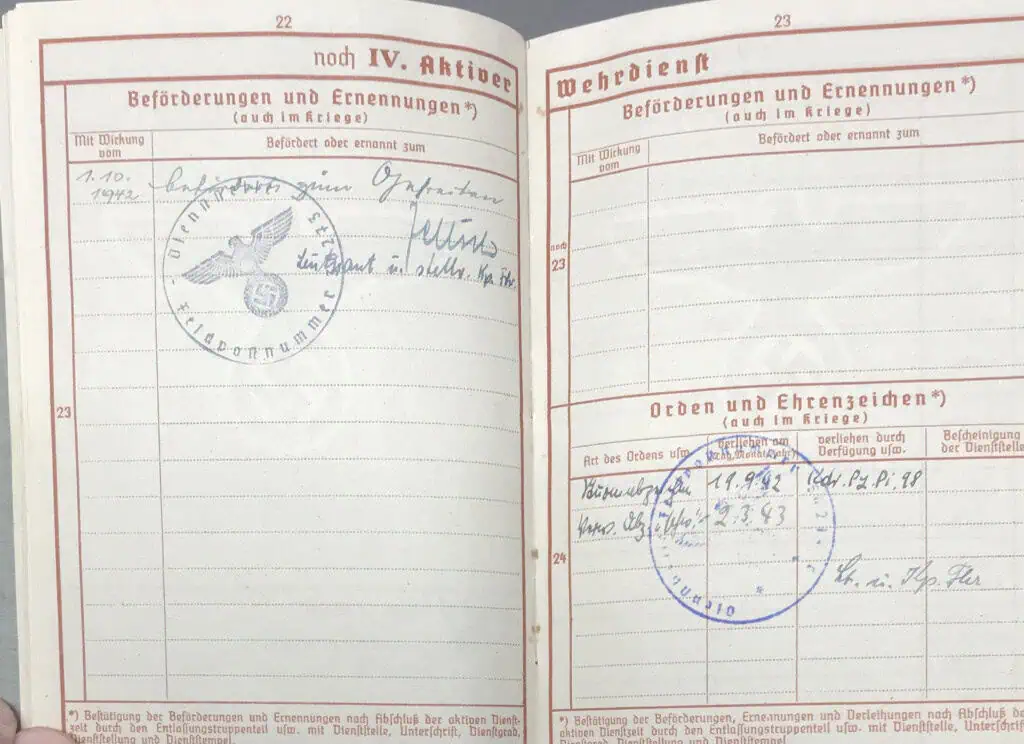 22
noch IV. Aktiver
Beförderungen und Ernennungen*)
(auch im Kriege)
Mit Wirkung
vom
Befördert oder ernannt zum
1.10.
1942
befördert zum Gefreiten
Leutnant u. stellv. Kp. Fhr.
Dienst
Feldpostnummer
23
*) Bestätigung der Beförderungen und Ernennungen nach Abschluß der aktiven Dienst-
zeit durch den Entlassungstruppenteil usw. mit Dienststelle, Unterschrift, Dienstgrad,
Dienststellung und Dienststempel.
23
Wehrdienst
Beförderungen und Ernennungen*)
(auch im Kriege)
Mit Wirkung
vom
Befördert oder ernannt zum
noch
23
Orden und Ehrenzeichen*)
(auch im Kriege)
Art des Ordens usw.
verliehen am
(Tag, Monat, Jahr)
verliehen durch
Verfügung usw.
Bescheinigung
der Dienststelle
Sturmabzeichen 19.9.42 Kdr. Pz. Pi. 98
Verw. Abz. 2.3.43
24
Lt. u. Kp. Fhr
*) Bestätigung der Beförderungen, Ernennungen und Verleihungen nach Abschluß
aktiven Dienstzeit durch den Entlassungstruppenteil usw. mit Dienststelle, Unterschrift
Dienstgrad, Dienststellung und Dienststempel.